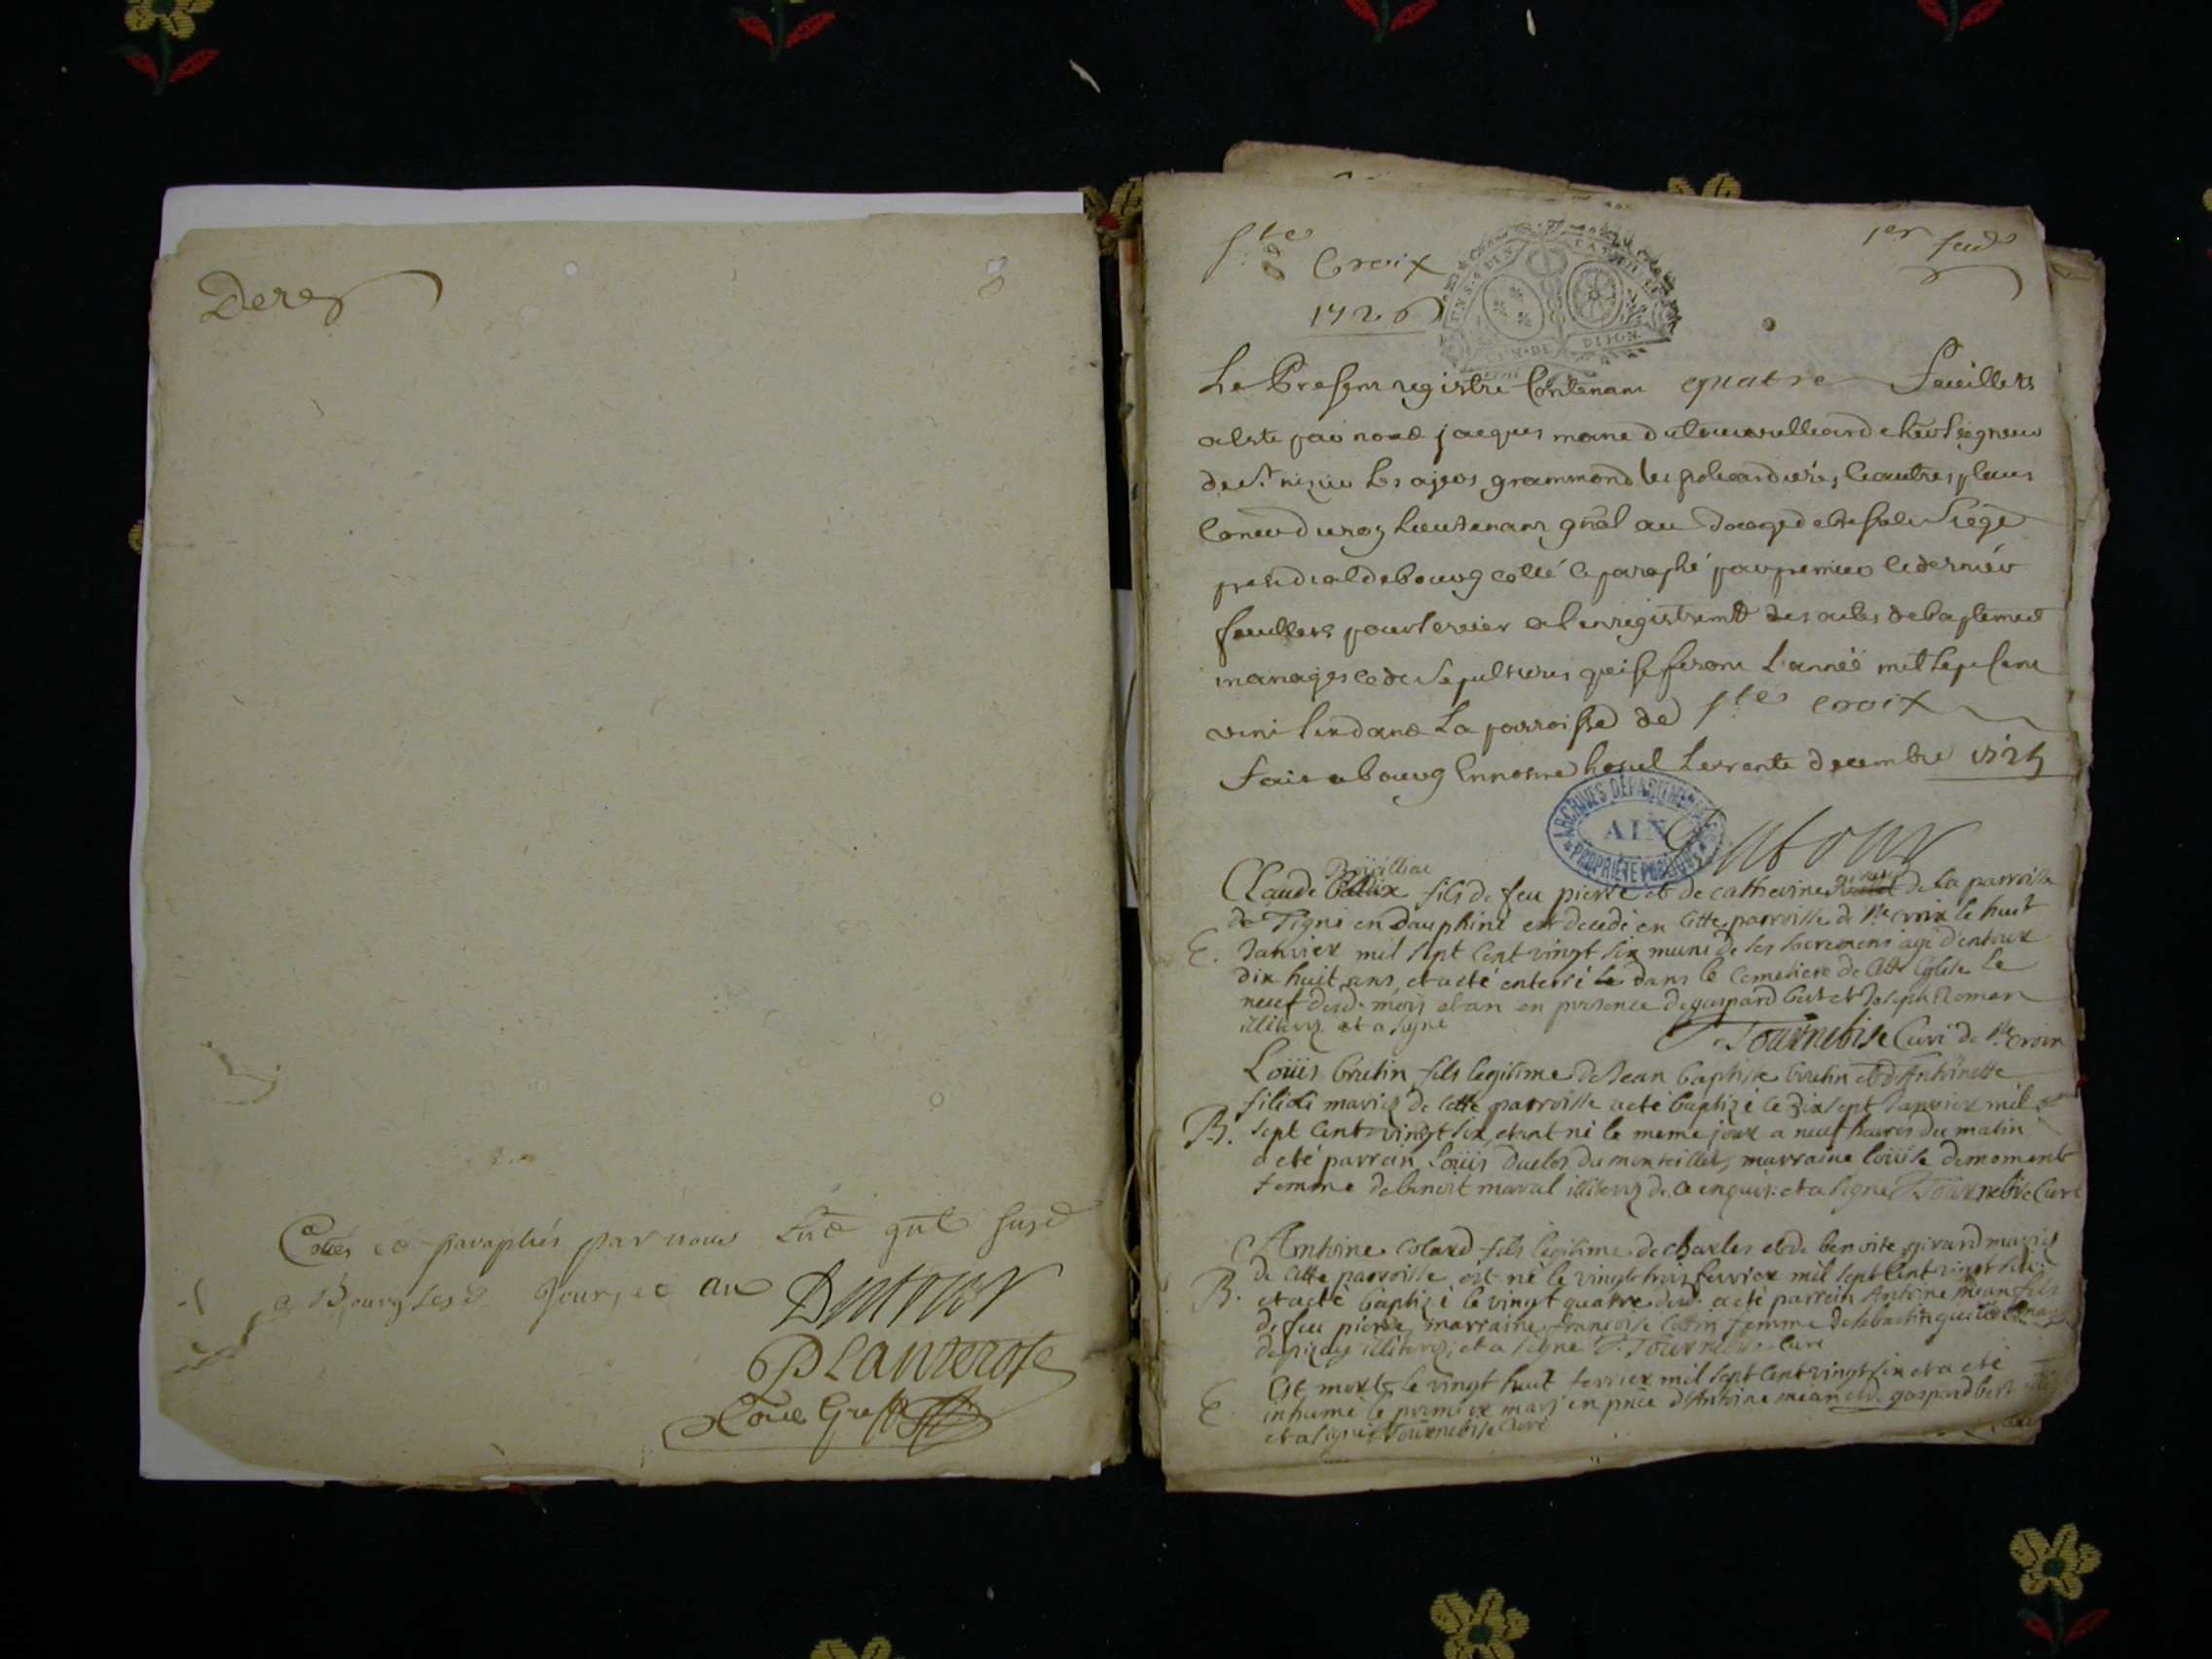 Der
Cottés et paraphés par nous Lnt gnl susd
a Bourg lesd jour, et an
Dutour
Ste
Croix
1726
1er feuil
DIJON
Le Present registre Contenant quatre feuillets
a este par nous jacques marie dutour seigneur
de St nizier grammond les et autres places
Coner du roy Lieutenant gnal au siege
presidial de bourg cotté et paraphé par premier et dernier
feuillets pour servir a l'enregistremt des actes de baptemes
mariages et de sepultures qui se feront L'année mil sept cent
vint six dans La parroisse de Ste croix
fait a bourg En nostre hostel Le trente decembre 1725
ARCHIVES DÉPARTEMENTALES
AIN
PROPRIÉTÉ PUBLIQUE
Dutour
Claude fils de feu pierre et de catherine de la parroisse
de Tigni en dauphiné est decedé en cette parroisse de Ste croix le huit
E. Janvier mil sept cent vingt six muni de ses sacremens agé d'entour
dix huit ans, et a eté enterré le dans le Cemetiere de cette Eglise le
neuf dud. mois et an en presence de gaspard bert et Joseph Roman
illiterez et a signé
Tournebise Curé de Ste Croix
Loüis brutin fils legitime de Jean baptiste brutin et d'Antoinette
mariez de cette parroisse a eté baptizé le dix sept Janvier mil
B. sept cent vingt six, etant né le meme jour a neuf heures du matin
a eté parrain Loüis duclos du montellier, marraine loüise demoment
femme de benoit maral illiterez de ce enquis et a signé Tournebise Curé
Antoine Colard fils legitime de charles et de benoite girard mariez
de cette parroisse, est né le vingt trois fevrier mil sept cent vingt six
B. et a eté baptizé le vingt quatre dud. a eté parrein Antoine mean fils
de feu pierre, marraine francoise femme de
de pizay illiterez, et a signé Tournebise curé
Est mort le vingt huit fevrier mil sept cent vingt six et a eté
E inhumé le premier mars en pnce d'Antoine mean et de gaspard bert
et a signé Tournebise Curé